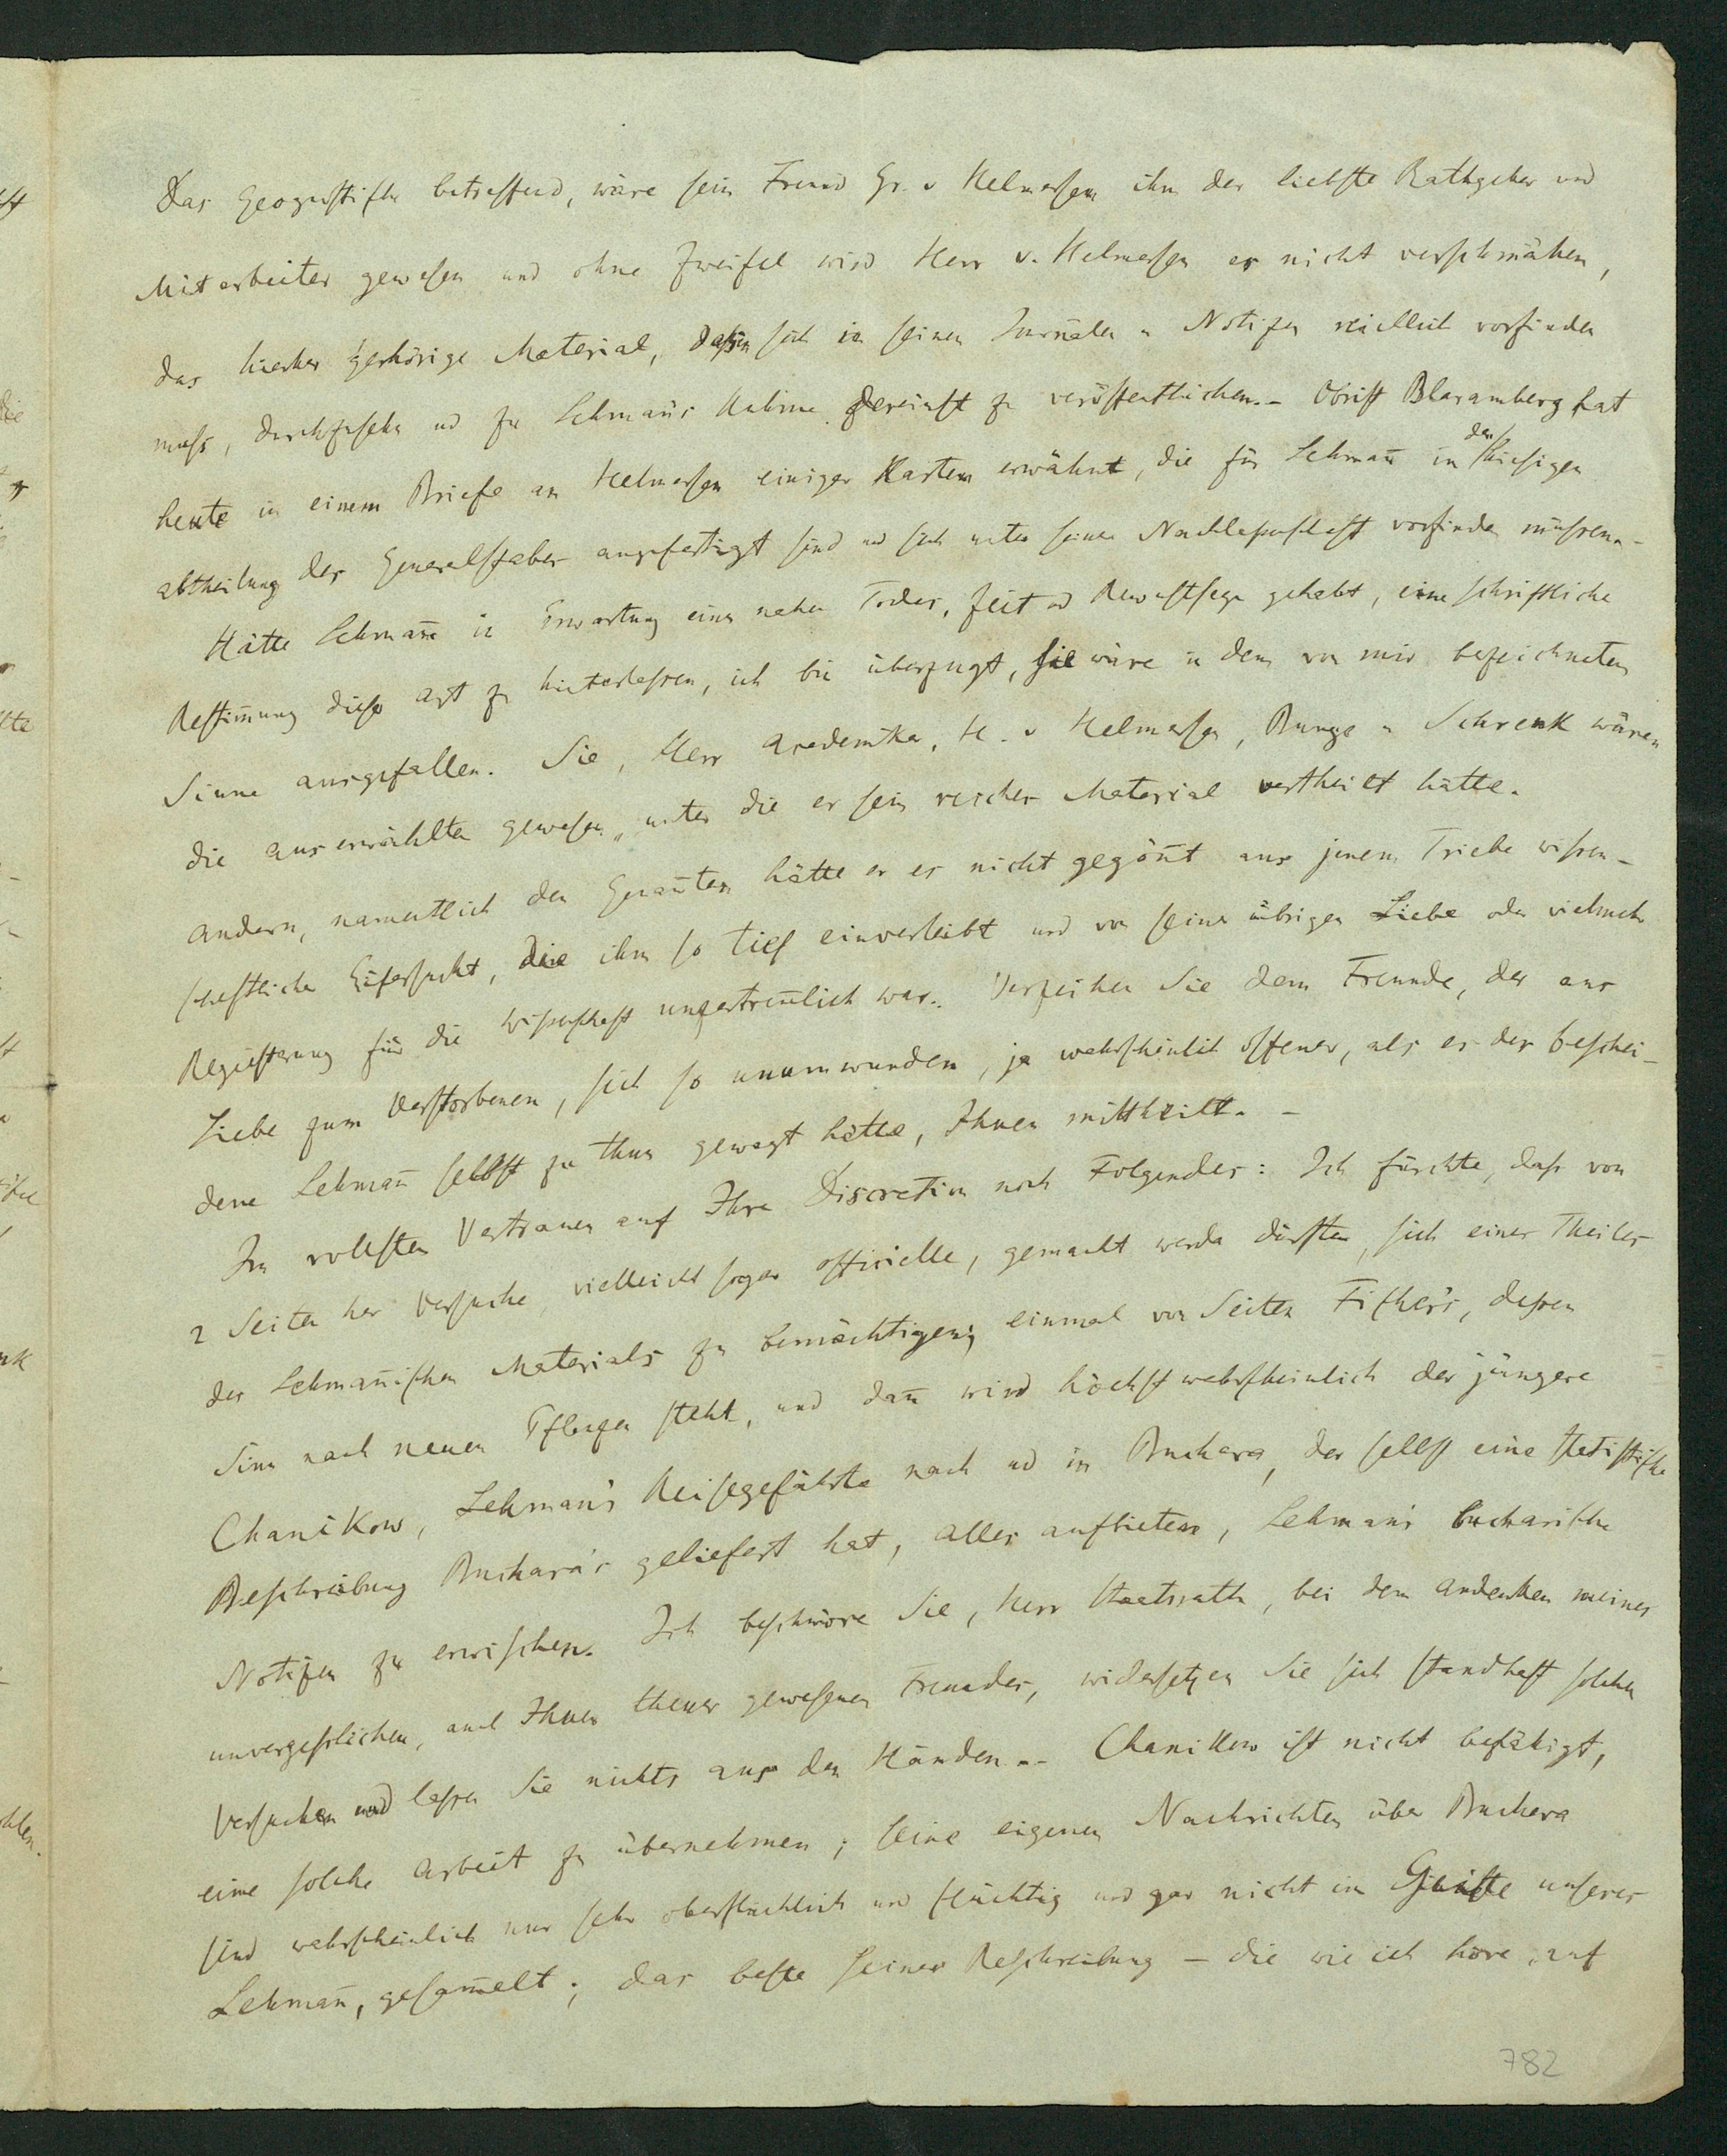 Das Geognostische betreffend, wäre sein Freund Gr. v Helmersen ihm der liebste Rathgeber und
Mitarbeiter gewesen und ohne Zweifel wird Herr v. Helmersen es nicht verschmähen,
das hierher gehörige Material, das sich in seinen Journalen u Notizen reichlich vorfinden
muss, durchzusehen und zu Lehmañs Nahme dereinst zu veröffentlichen. – Obrist Blaramberg hat
heute in einem Briefe an Helmersen einiger Karten erwähnt, die für Lehmañ in der hiesigen
abtheilung des Generalstabes angefertigt sind und sich unter seiner Nachlassenschaft vorfinden müssen. –
Hätte Lehmañ in Erwartung eines nahen Todes, Zeit und Bewustseyn gehabt, eine schriftliche
Bestim̄ung dieser Art zu hinterlassen, ich bin überzeugt, sie wäre in dem von mir bezeichneten
Sinne ausgefallen. Sie, Herr Academiker, H. v Helmersen, Bunge u Schrenk wären
die auserwählten gewesen, unter die er sein reiches Material vertheilt hätte.
Andern, namentlich den Genañten hätte er es nicht gegöñt aus jenem Triebe wissen-
schaftlicher Eifersucht, die ihm so tief einverleibt und von seiner übrigen Liebe oder vielmehr
Begeisterung für die Wissenschaft unzertreñlich war. Verzeihen Sie dem Freunde, der aus
Liebe zum Verstorbenen, sich so unumwunden, ja wahrscheinlich offener, als es der beschei-
dene Lehmañ selbst zu thun gewagt hätte, Ihnen mittheilt. –
Im vollsten Vertrauen auf Ihre Discretion noch Folgendes: Ich fürchte, dass von
2 Seiten her Versuche, vielleicht sogar officielle, gemacht werden dürften, sich eines Theiles
des Lehmañischen Materials zu bemächtigen; einmal von Seiten Fischer's, dessen
Sinn nach neuen Pflanzen steht, und dañ wird höchst wahrscheinlich der jüngere
Chanikow, Lehmañ's Reisegefährte nach und in Buchara, der selbst eine statistische
Beschreibung Buchara's geliefert hat, alles aufbieten, Lehmañ's bucharische
Notizen zu erwischen. Ich beschwöre Sie, Herr Staatsrath, bei dem Andenken meines
unvergesslichen, auch Ihnen theuer gewesenen Freundes, widersetzen Sie sich standhaft solchen
Versuchen und lassen Sie nichts aus den Händen. – Chanikow ist nicht befähigt,
eine solche Arbeit zu übernehmen; seine eigenen Nachrichten über Buchara
sind wahrscheinlich nur sehr oberflächlich und flüchtig und gar nicht im Geiste unseres
Lehmañ, gesam̄elt; das beste seiner Beschreibung – die wie ich höre, auf
782